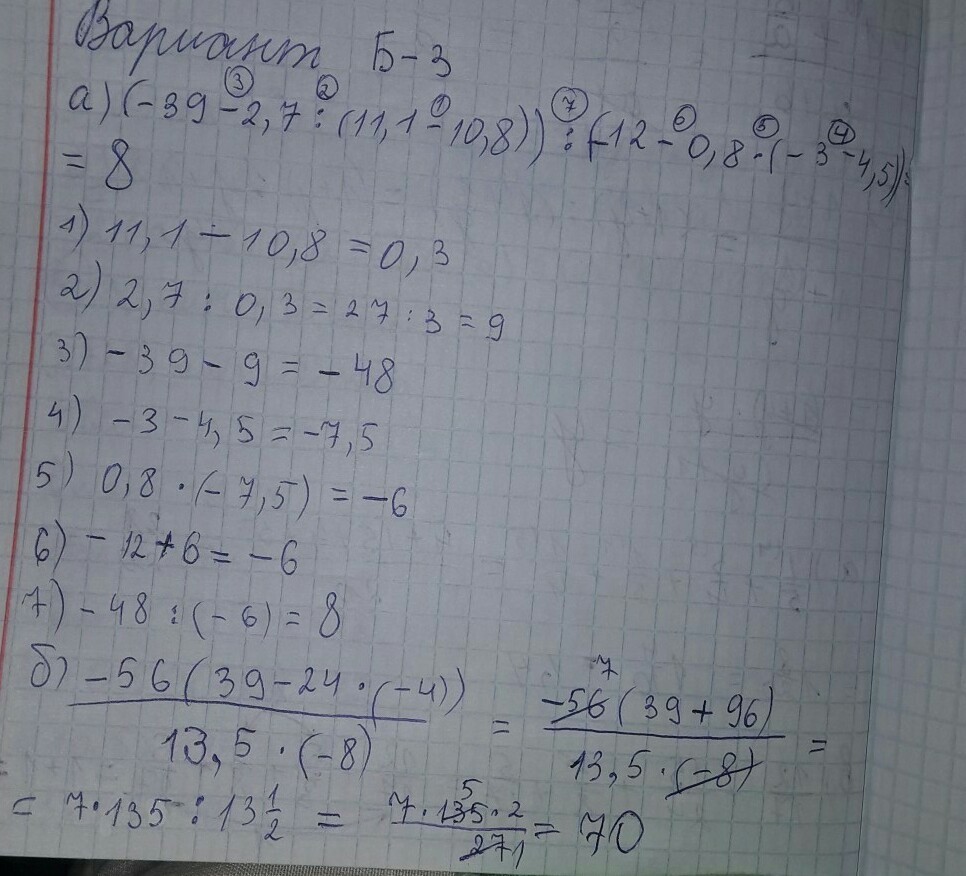 Вариант Б-3
а) (-39 -③ 2,7 :② (11,1 -① 10,8)) :⑦ (-12 -⑥ 0,8 ·⑤ (-3 -④ 4,5)) =
= 8
1) 11,1 - 10,8 = 0,3
2) 2,7 : 0,3 = 27 : 3 = 9
3) -39 - 9 = -48
4) -3 - 4,5 = -7,5
5) 0,8 · (-7,5) = -6
6) -12 + 6 = -6
7) -48 : (-6) = 8
б) -56 (39 - 24 · (-4)) / 13,5 · (-8) = 7 -56 (39 + 96) / 13,5 · (-8) =
= 7 · 135 : 13 1/2 = 7 · 135 5 · 2 / 27 1 = 70